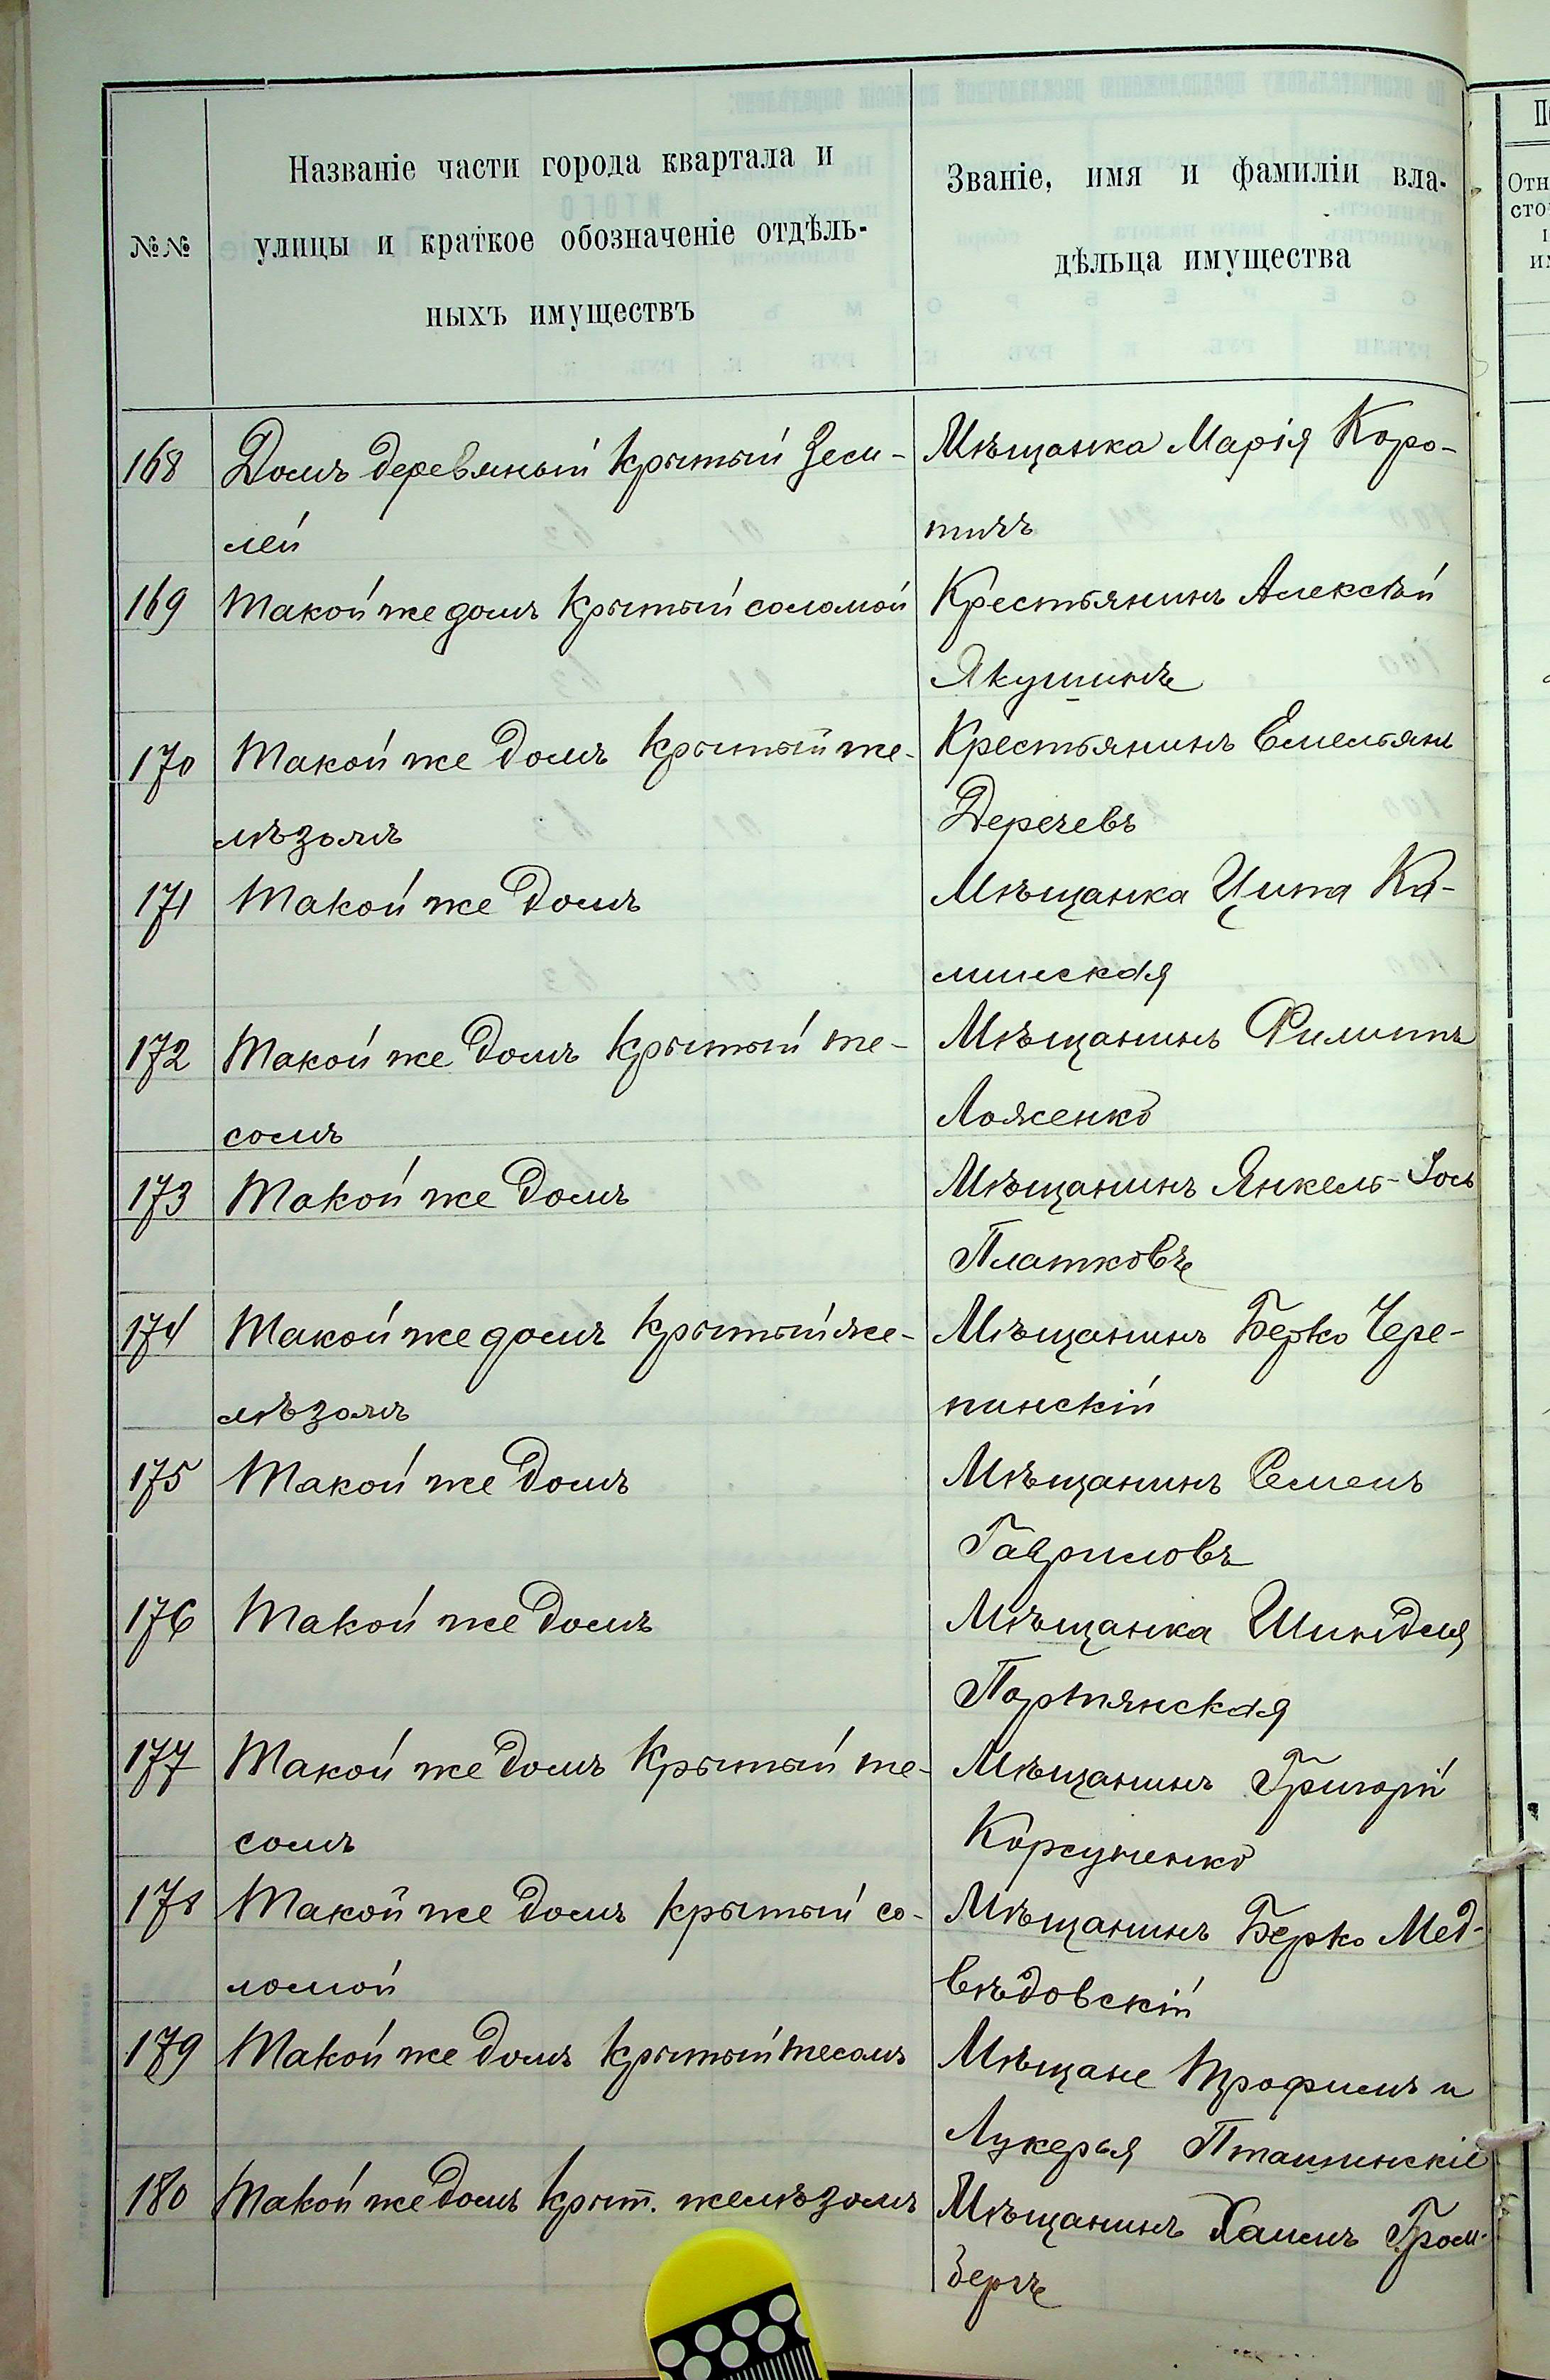 №№
Названіе части города квартала и
улицы и краткое обозначеніе отдѣль-
ныхъ имуществъ
Званіе, имя и фамиліи вла-
дѣльца имущества
168 Домъ деревяный крытый зем- Мѣщанка Марія Коро-
лей
тичъ
169 Такой же домъ крытый соломой Крестьянинъ Алексѣй
Якушинъ
170 Такой же домъ крытый же- Крестьянинъ Емельянъ
лѣзомъ Деречевъ
171 Такой же домъ Мѣщанка Ципа Ка-
минская
172 Такой же домъ крытый те- Мѣщанинъ Филипъ
сомъ Ложенко
173 Такой же домъ Мѣщанинъ Янкель-Іось
Платковъ
174 Такой же домъ крытый же- Мѣщанинъ Берко Чере-
лѣзомъ пинскій
175 Такой же домъ Мѣщанинъ Семенъ
Гавриловъ
176 Такой же домъ Мѣщанка Шиндля
Портянская
177 Такой же домъ крытый те- Мѣщанинъ Григорій
сомъ Корсуненко
178 Такой же домъ крытый со- Мѣщанинъ Берко Мед-
ломой вѣдовскій
179 Такой же домъ крытый тесомъ Мѣщане Трофимъ и
Лукерья Пташинскіе
180 Такой же домъ крыт. желѣзомъ Мѣщанинъ Хаимъ Гром-
бергъ